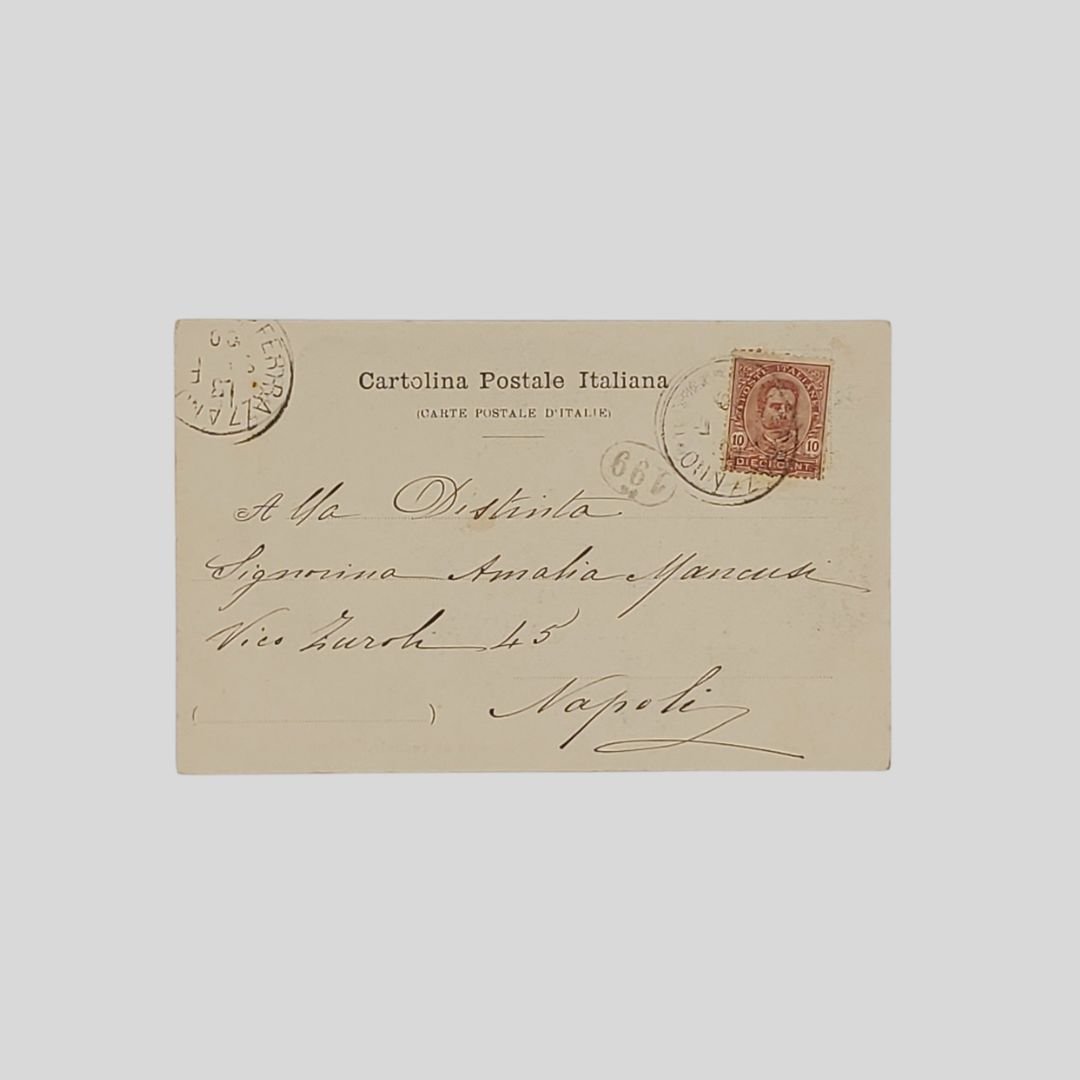 Cartolina Postale Italiana
(CARTE POSTALE D'ITALIE)
FERRAZZANO
POSTE ITALIANE
10 10
DIECI CENT.
199
Alla Distinta
Signorina Amalia Mancusi
Vico Zuroli 45
Napoli